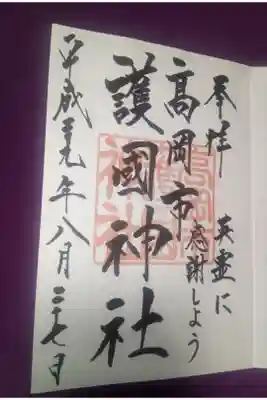 奉拝
英霊に
感謝しよう
髙岡市
護國神社
平成二十九年八月二十七日